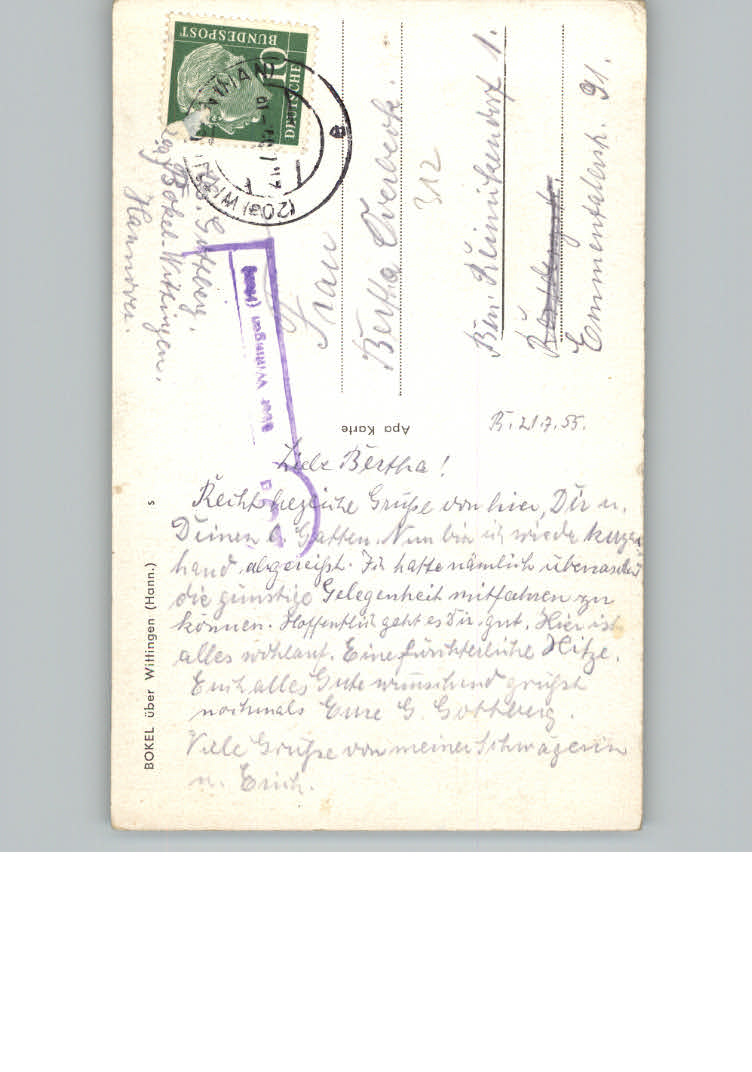 DEUTSCHE
BUNDESPOST
10
(20a) WITTINGEN (HAN)
a
G. Gottberg.
Bokel-Wittingen,
Hannover.
über Wittingen (Han)
Frau
Bertha Overbeck.
312
Bln. Reinickendorf 1.
Emmentalerstr. 91.
Apa Karte
B. 21.7.55.
Liebe Bertha!
Recht herzliche Grüße von hier, Dir u.
Deinen l. Gatten. Nun bin ich wieder kurzer
hand abgereißt. Ich hatte nämlich überraschend
die günstige Gelegenheit mitfahren zu
können. Hoffentlich geht es Dir gut. Hier ist
alles wohlauf. Eine fürchterliche Hitze.
Euch alles Gute wünschend grüßt
nochmals Eure G. Gottberg.
Viele Grüße von meiner Schwägerin
u. Erich.
BOKEL über Wittingen (Hann.) s